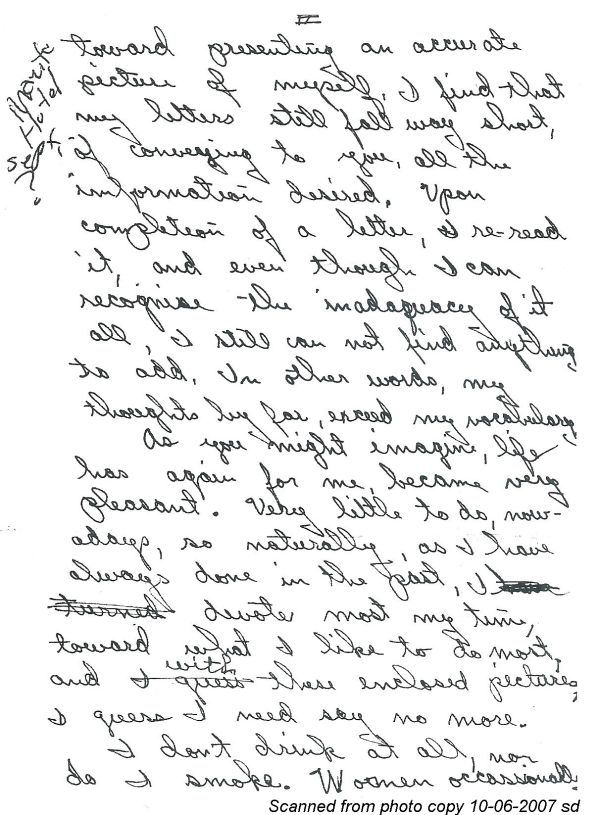 II
toward presenting an accurate
picture of myself, I find that
my letters still fall way short,
of conveying to you, all the
information desired. Upon
completion of a letter, I re-read
it, and even though I can
recognise the inadaquacy of it
all, I still can not find anything
to add. In other words, my
thoughts by far, exceed my vocabulary
As you might imagine, life
has again for me, became very
pleasant. Very little to do, now-
adays, so naturally, as I have
always done in the past, I
turned devote most my time,
toward what I like to do most,
with
and I guess these enclosed pictures,
I guess I need say no more.
I don't drink at all, nor
do I smoke. Women occassionally
Sept,
Scanned from photo copy 10-06-2007 sd